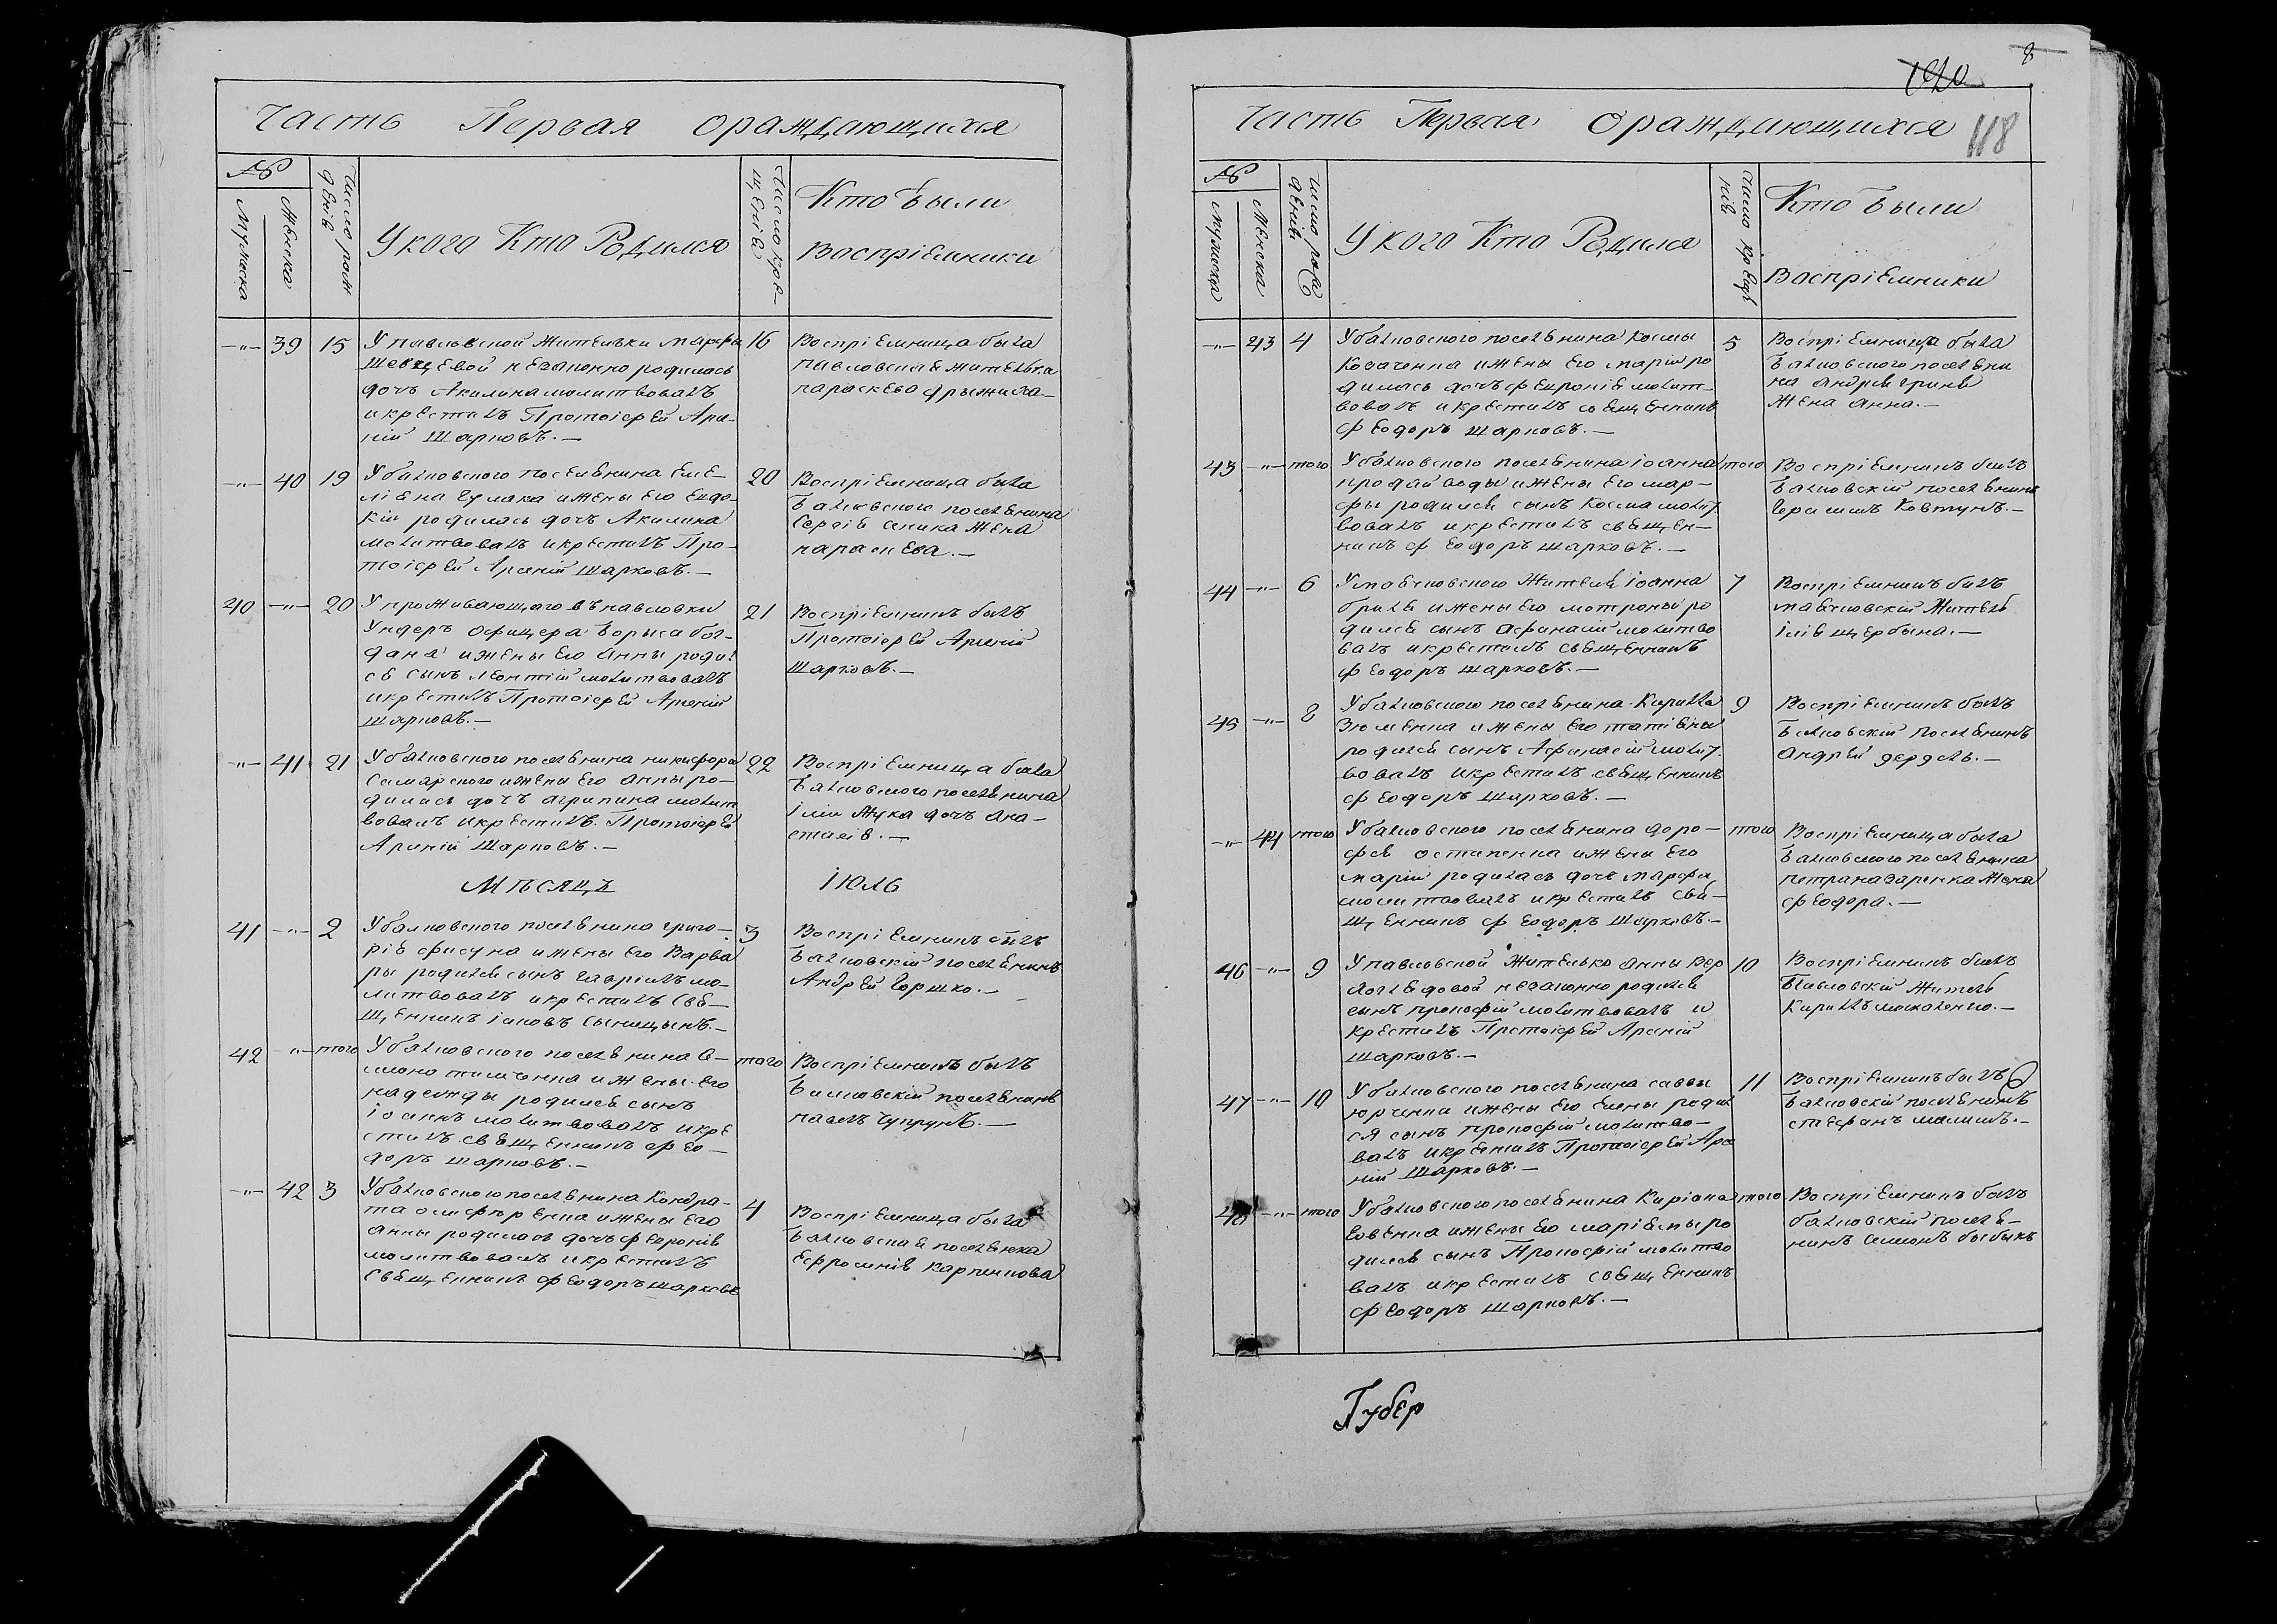 Часть Первая ораждающихся
№
Мужиска
Женска
Число рож
дЕнiя
У кого Кто Родился
Число кре-
щЕнiя
Кто были
ВоспрiЕмники
-"- 39 15
У павловской жительки Марфы
ШевцЕвой нЕзаконно родилась
дочь Акилина молитвовалъ
и крЕстилъ ПротоiЕрЕй Арсе-
нiй Шарковъ.-
16
ВоспрiЕмница была
павловская житЕлька
параскЕва
-"- 40 19
У балковского посЕлянина ЕмЕ-
лiяна Гулака и жЕны Его Евдо-
кiи родилась дочь Акилина
молитвовалъ и крЕстилъ Про-
тоiЕрЕй Арсенiй Шарковъ.-
20
ВоспрiЕмница была
Балковского посЕлянина
Сергiя жЕна
параскЕва.-
40 -"- 20
У проживающаго въ павловки
Ундеръ офицера Борыса бог-
дана и жЕны Его Анны родил
ся сынъ Леонтiй молитвовалъ
и крЕстилъ ПротоiЕрЕй Арсенiй
Шарковъ.-
21
ВоспрiЕмникъ былъ
ПротоiЕрЕй Арсенiй
Шарковъ.-
-"- 41 21
У балковского посЕлянина никифора
Самарского и жЕны Его анны ро-
дилась дочь агрипина молит
вовалъ и крЕстилъ ПротоiЕрЕй
Арсенiй Шарковъ.-
22
ВоспрiЕмница была
Балковского посЕлянина
Iлiи Жука дочь ана-
стасiя.-
Мѣсяцъ Iюль
41 -"- 2
У балковского посЕлянина григо-
рiя фисуна и жЕны Его Варва
ры родился сынъ гаврiилъ мо-
литвовалъ и крЕстилъ Свя-
щЕнникъ iаковъ Сыницынъ.-
3
ВоспрiЕмникъ былъ
Балковскiй посЕлянинъ
АндрЕй Горшко.-
42 -"- того
У балковского посЕлянина С-
имона тимченка и жЕны Его
надежды родился сынъ
iоаннъ молитвовалъ и крЕ
стилъ свящЕнникъ фЕо-
доръ шарковъ.-
того
ВоспрiЕмникъ былъ
Балковскiй посЕлянинъ
павелъ Чупрунъ.-
-"- 42 3
У балковского посЕлянина Кондра-
та и жЕны Его
анны родилась дочь фЕвронiя
молитвовалъ и крЕстилъ
СвящЕнникъ фЕодоръ шарковъ
4
ВоспрiЕмница была
Балковская посЕлянка
Ефросинiя карпенкова
8
120
118
Часть Первая ораждающихся
№
Мужиска
Женска
Число рож
дЕнiя
У кого Кто Родился
Число крЕщ
нiя
Кто были
ВоспрiЕмники
-"- 43 4
У балковского посЕлянина космы
Козаченка и жЕны Его марiи ро
дилась дочь фЕвронiя молит-
вовалъ и крЕстилъ свящЕнникъ
фЕодоръ шарковъ.-
5
ВоспрiЕмница была
Балковского посЕляни
на андрея гриня
жЕна анна.-
43 -"- того
У балковского посЕлянина iоанна
продайводы и жЕны Его мар-
фы родился сынъ косма молит
вовалъ и крЕстилъ свящЕн-
никъ фЕодоръ шарковъ.-
того
ВоспрiЕмникъ былъ
Балковскiй посЕлянинъ
герасимъ Ковтунъ.-
44 -"- 6
У жителя iоанна
и жЕны Его мотроны ро
дился сынъ афанасiй молитво
валъ и крЕстилъ свящЕнникъ
фЕодоръ шарковъ.-
7
ВоспрiЕмникъ былъ
житель
iлiя щЕрбына.-
45 -"- 8
У балковского посЕлянина Кирилла
Зюменка и жЕны Его татiяны
родился сынъ Афанасiй молит
вовалъ и крЕстилъ свящЕнникъ
фЕодоръ шарковъ.-
9
ВоспрiЕмникъ былъ
Балковскiй посЕлянинъ
андрЕй дердель.-
-"- 44 того
У балковского посЕлянина доро-
фея остапенка и жЕны Его
марiи родилась дочь марфа
молитвовалъ и крЕстилъ свя-
щЕнникъ фЕодоръ шарковъ.-
того
ВоспрiЕмница была
Балковского посЕлянина
петра назаренка жЕна
фЕодора.-
46 -"- 9
У павловской жителько анны вер
нЕзаконно родился
сынъ прокофiй молитвовалъ и
крЕстилъ ПротоiЕрЕй Арсенiй
шарковъ.-
10
ВоспрiЕмникъ былъ
Павловскiй житель
Кириллъ москаленко.-
47 -"- 10
У балковского посЕлянина саввы
юрченка и жЕны Его Елены родил
ся сынъ прокофiй молитво-
валъ и крЕстилъ ПротоiЕрЕй Арсе
нiй Шарковъ.-
11
ВоспрiЕмникъ былъ
Балковскiй посЕлянинъ
стЕфанъ малышъ.-
48 -"- того
У балковского посЕлянина Кирiана
вовЕнка и жЕны Его марiЕмы ро
дился сынъ Прокофiй молитво
валъ и крЕстилъ свящЕнникъ
фЕодоръ шарковъ.-
того
ВоспрiЕмникъ былъ
балковскiй посЕля-
нинъ Симонъ быбыкъ
Губер